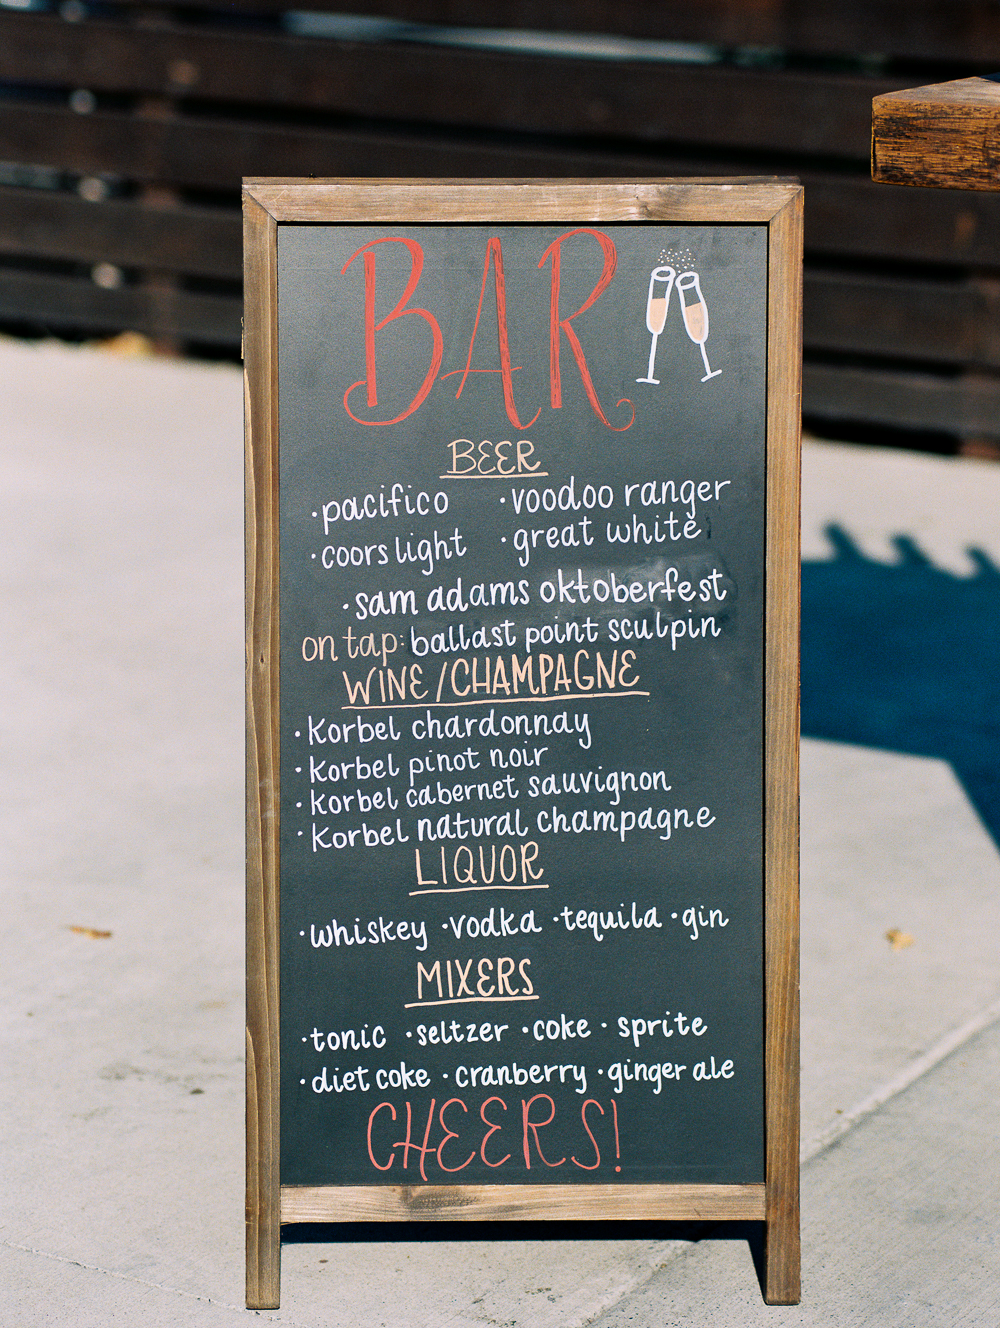 BAR
BEER
·pacifico ·voodoo ranger
·coors light ·great white
·sam adams oktoberfest
on tap: ballast point sculpin
WINE/CHAMPAGNE
·Korbel chardonnay
·Korbel pinot noir
·Korbel cabernet sauvignon
·Korbel natural champagne
LIQUOR
·whiskey ·vodka ·tequila ·gin
MIXERS
·tonic ·seltzer ·coke ·sprite
·diet coke ·cranberry ·ginger ale
CHEERS!